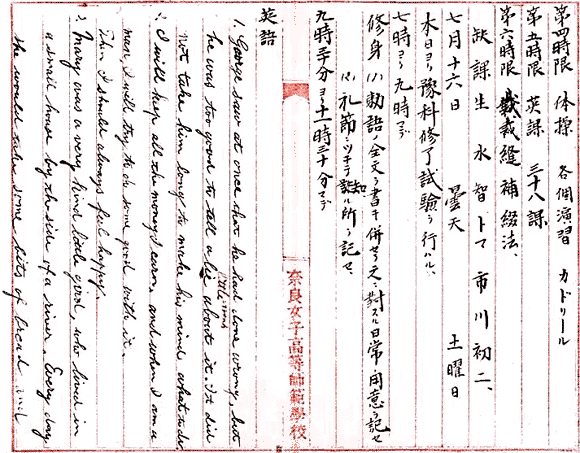 第四時限 体操 各個演習 カドリール
第五時限 英語 三十八課
第六時限 裁縫 補綴法、
欠課生 水智トマ 市川初二、
七月十六日 曇天 土曜日
本日ヨリ豫科修了試驗ヲ行ハル、
七時ヨリ九時マデ
修身 (1) 勅語ノ全文ヲ書キ併セテ之ニ對スル日常ノ用意ヲ記セ
(2) 礼節ニツキテ知ル所ヲ記セ
九時三十分ヨリ十一時三十分マデ
奈良女子高等師範學校
英語
1. George saw at once that he had done wrong, but
he was too good to tell a lie about it. It did
not take him long to make his little mind what to do.
2. I will keep all the money I earn, and when I am a
man, I will try to do some good with it.
Then I should always feel happy.
3. Mary was a very kind little girl, who lived in
a small house by the side of a river. Every day
she would take some bits of bread and